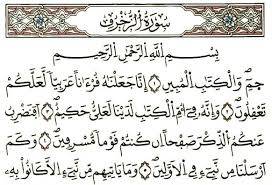 سورة الزخرف
بسم الله الرحمن الرحيم
حم ١ والكتب المبين ٢ إنا جعلنه قرءنا عربيا لعلكم
تعقلون ٣ وإنه في أم الكتب لدينا لعلي حكيم ٤ أفنضرب
عنكم الذكر صفحا أن كنتم قوما مسرفين ٥ وكم
أرسلنا من نبي في الأولين ٦ وما يأتيهم من نبي إلا كانوا به